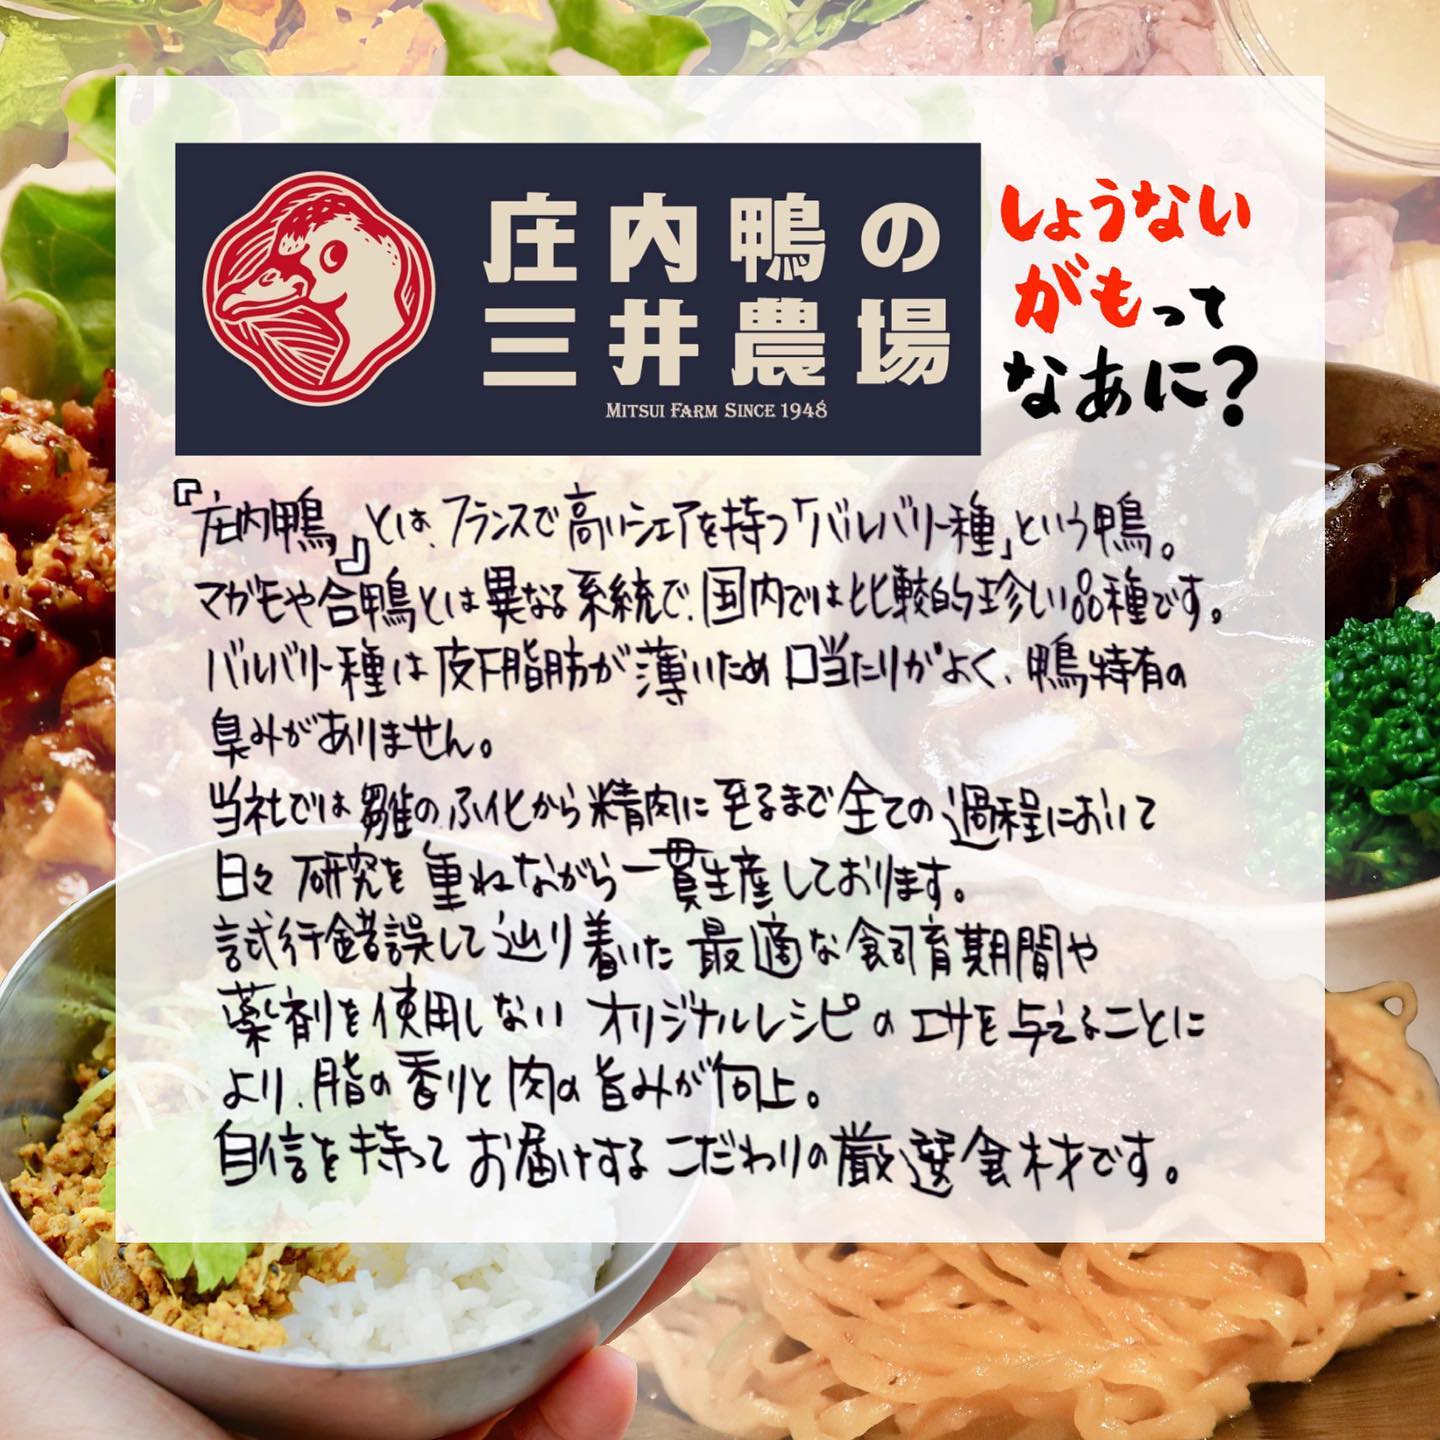 庄内鴨の
三井農場
MITSUI FARM SINCE 1948
しょうない
がもって
なあに?
『庄内鴨』とは、フランスで高いシェアを持つ「バルバリー種」という鴨。
マガモや合鴨とは異なる系統で、国内では比較的珍しい品種です。
バルバリー種は皮下脂肪が薄いため口当たりがよく、鴨特有の
臭みがありません。
当社では雛のふ化から精肉に至るまで全ての過程において
日々研究を重ねながら一貫生産しております。
試行錯誤して辿り着いた最適な飼育期間や
薬剤を使用しないオリジナルレシピのエサを与えることに
より、脂の香りと肉の旨みが向上。
自信を持ってお届けするこだわりの厳選食材です。